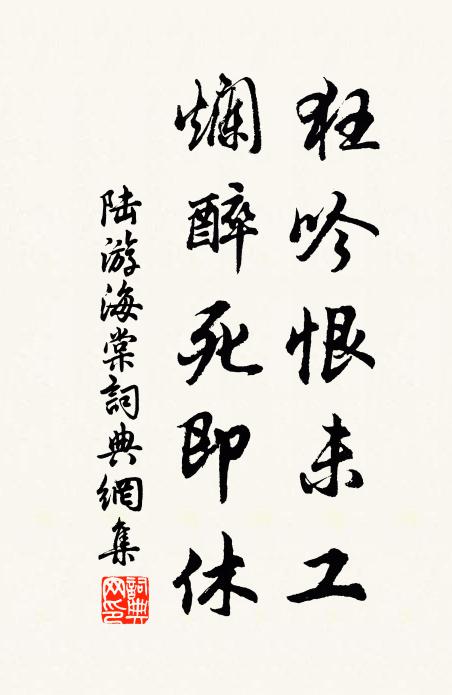 狂吟恨未工
爛醉死即休
陆游海棠詞典網集
詞典网印